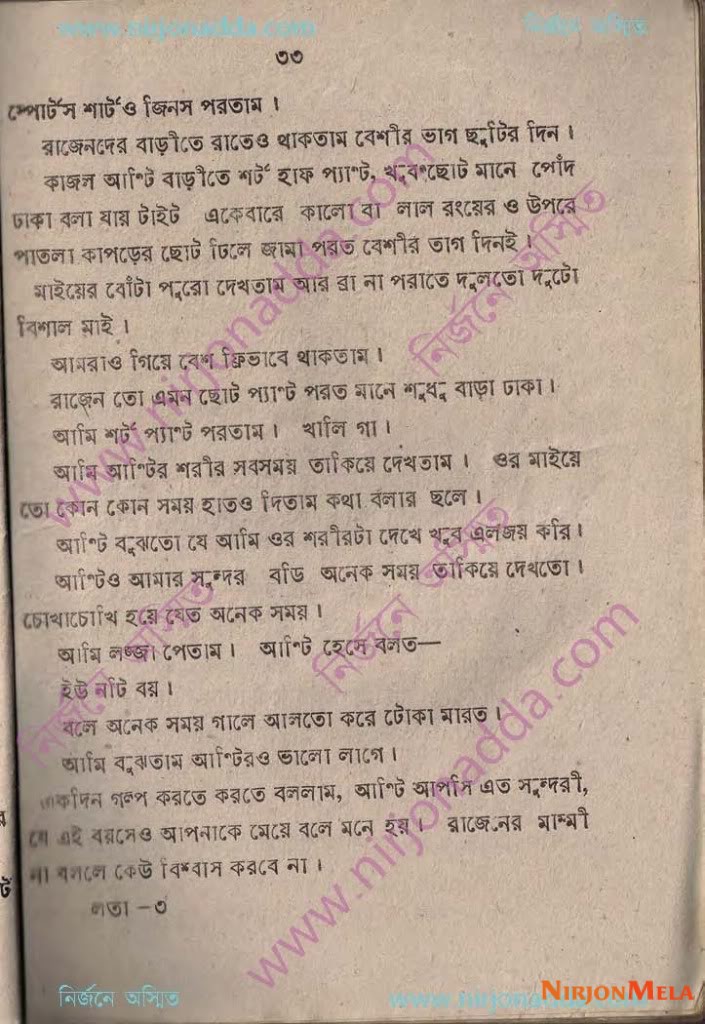 www.nirjonadda.com নির্জনে অস্মিত
৩৩
স্পোর্টস শার্ট ও জিনস পরতাম ।
রাজেনদের বাড়ীতে রাতেও থাকতাম বেশীর ভাগ ছুটির দিন ।
কাজল আন্টি বাড়ীতে শর্ট হাফ প্যান্ট, খুব ছোট মানে পোঁদ
ঢাকা বলা যায় টাইট একেবারে কালো বা লাল রংয়ের ও উপরে
পাতলা কাপড়ের ছোট ঢিলে জামা পরত বেশীর ভাগ দিনই ।
মাইয়ের বোঁটা পুরো দেখতাম আর ব্রা না পরাতে দুলতো দুটো
বিশাল মাই ।
আমরাও গিয়ে বেশ ফ্রিভাবে থাকতাম ।
রাজেন তো এমন ছোট প্যান্ট পরত মানে শুধু বাড়া ঢাকা ।
আমি শর্ট প্যান্ট পরতাম । খালি গা ।
আমি আন্টির শরীর সবসময় তাকিয়ে দেখতাম । ওর মাইয়ে
তো কোন কোন সময় হাতও দিতাম কথা বলার ছলে ।
আন্টি বুঝতো যে আমি ওর শরীরটা দেখে খুব এনজয় করি ।
আন্টিও আমার সুন্দর বডি অনেক সময় তাকিয়ে দেখতো ।
চোখাচোখি হয়ে যেত অনেক সময় ।
আমি লজ্জা পেতাম । আন্টি হেসে বলত—
ইউ নটি বয় ।
বলে অনেক সময় গালে আলতো করে টোকা মারত ।
আমি বুঝতাম আন্টিরও ভালো লাগে ।
একদিন গল্প করতে করতে বললাম, আন্টি আপনি এত সুন্দরী,
যে এই বয়সেও আপনাকে মেয়ে বলে মনে হয় । রাজেনের মাম্মী
না বললে কেউ বিশ্বাস করবে না ।
লতা –৩
নির্জনে অস্মিত www.nirjonadda.com NIRJONMELA